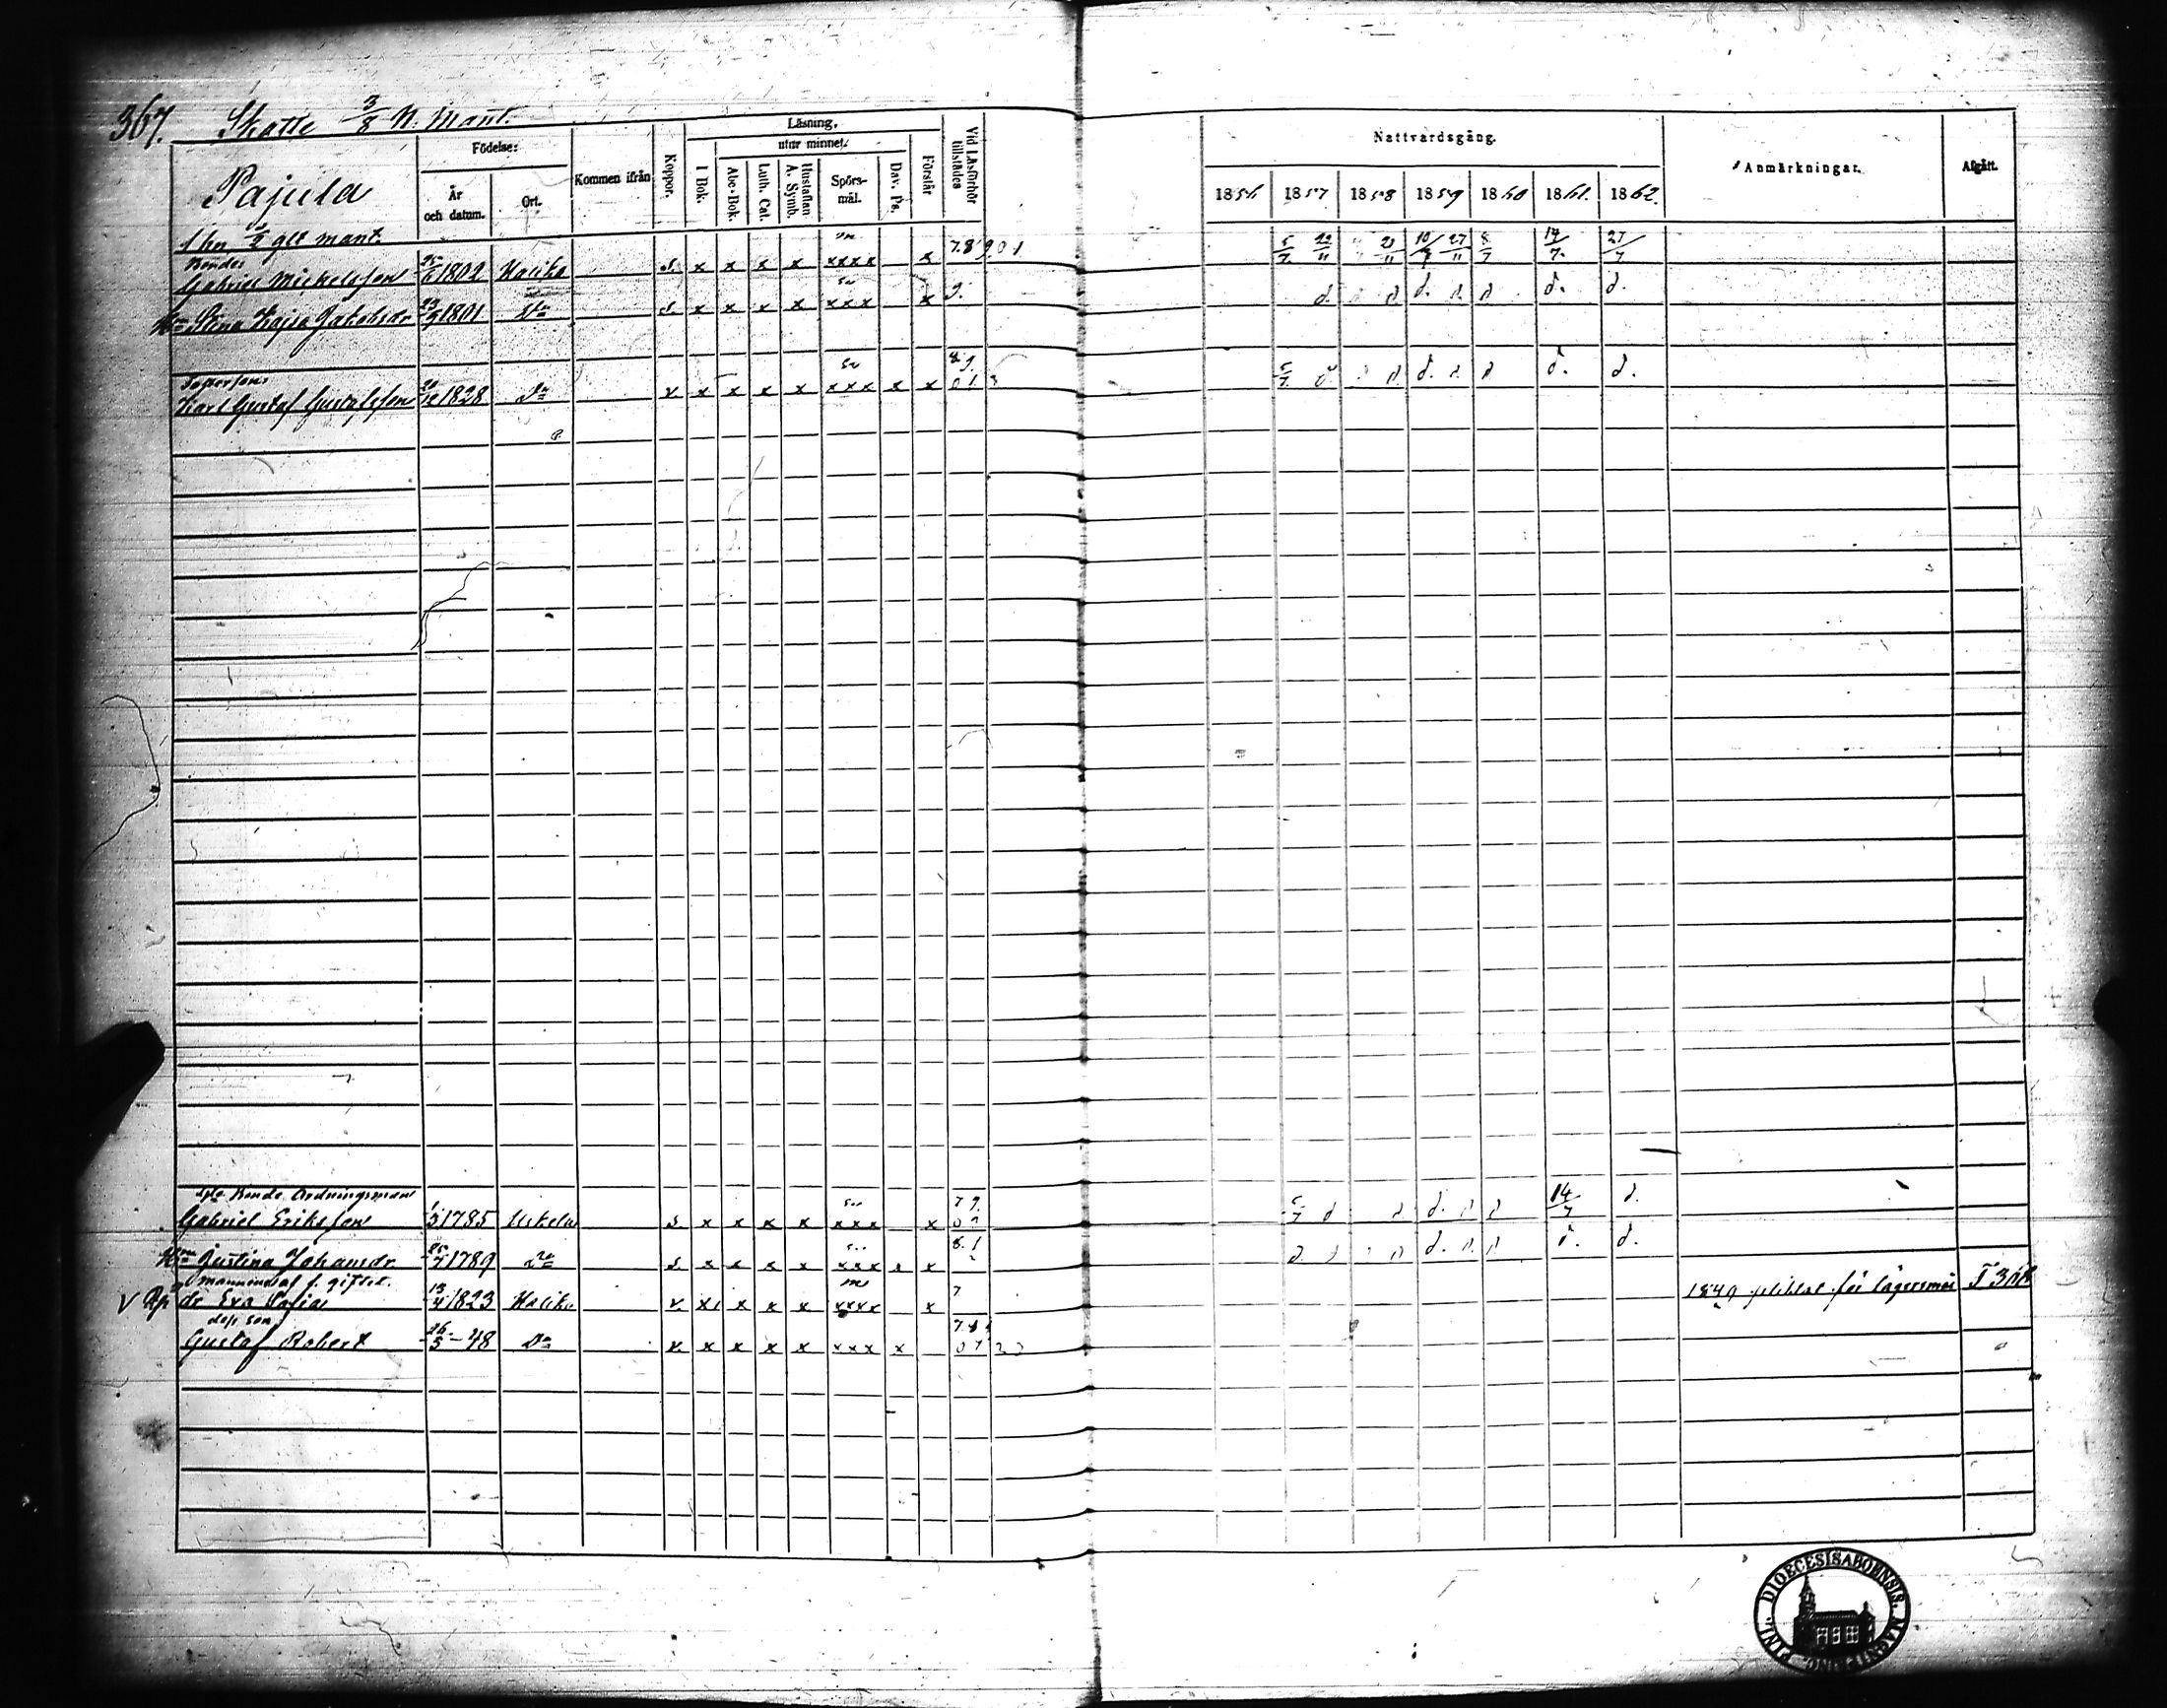 367. Skatte 3/8 n. Mant.
Pajula
Födelse:
År och datum.
Ort.
Kommen ifrån
Koppor.
Läsning.
utur minnet.
I Bok.
Abc-Bok.
Luth. Cat.
Hustaflan A. Symb.
Spörs-mål.
Dav. Ps.
Förstår
Vid Läsförhör tillstädes
Nattvardsgång.
1856 1857 1858 1859 1860 1861. 1862.
Anmärkningar.
Afgått.
Bonde
Gabriel Mickelsson 1802 Haliko s. x x x x xxxx x 7.8 9.0 1 5/7 22/11 21/11 10/7 27/11 8/7 14/7. 27/7
Hu Stina Kajsa Jakobsdr 23/9 1801 Do s. x x x x xxx x 9. d. d. d. d. d. d. d.
Fosterson
Karl Gustaf Gustafsson 20/12 1828 Do v x x x x xxx x x 8 9. 0 1. 5/7 d. d. d. d. d. d. d.
Bonde Ordningsman
Gabriel Eriksson 1785 Uskela s x x x x xxx x 7 9. 5/7 d d d. d d 14/7 d.
Hu Justina Johansdr 1789 Do s. x x x x xxx x x 8. 1 d d d d. d. d. d. d.
dr Eva Sofia 13/4 1823 Haliko v. x x x x xxxx x 7 för lägersmål F 368
des son
Gustaf Robert 26/5 -48 Do v. x x x x xxx x
FINL. DIOECESIS ABOENSIS. MAGNI PRINC.